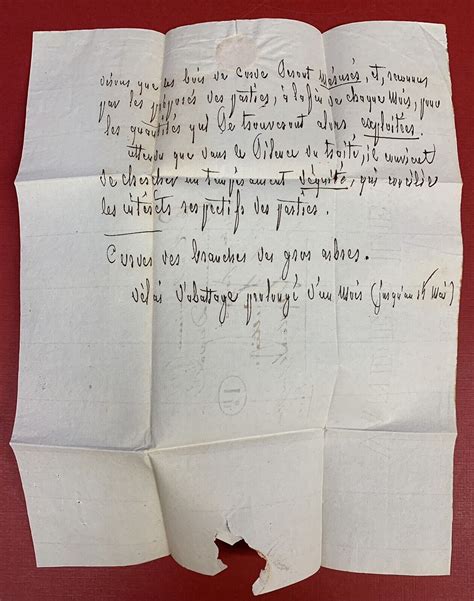 disons que les bois de corde seront mesurés et, reconnus
par les préposés des parties, à la fin de chaque mois, pour
les quantités qui se trouveront alors exploitées.
attendu que dans le silence du traité, il convient
de chercher un tempérament d'équité, qui concilie
les intérêts respectifs des parties.
Curves des branches des gros arbres.
délai d'abattage prolongé d'un mois (jusqu'au 15 Mai)